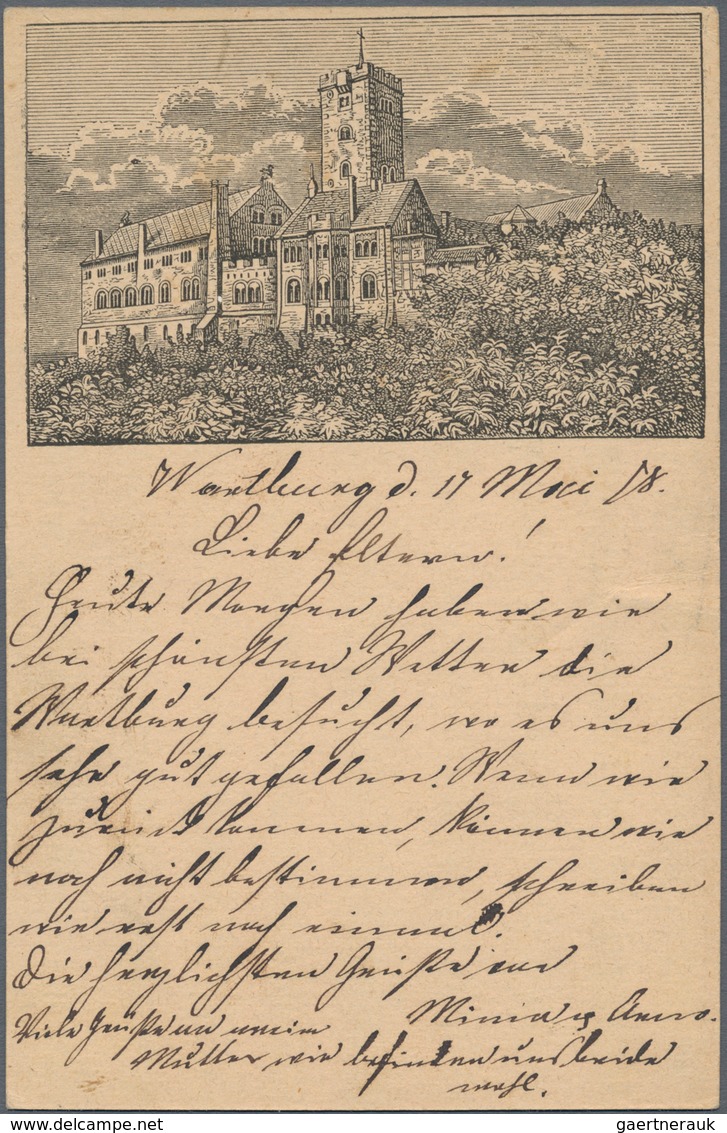 Wartburg d. 17 Mai 78.
Liebe Eltern!
Heute Morgen haben wir
bei schönsten Wetter die
Wartburg besucht, wo es uns
sehr gut gefallen. Wenn wir
zurück kommen, können wir
noch nicht bestimmen, schreiben
wir erst noch einmal.
Die herzlichsten Grüße von
Minna u Arno.
Viele Grüße an meine
Mutter wir befinden uns beide
wohl.
gaertnerauk